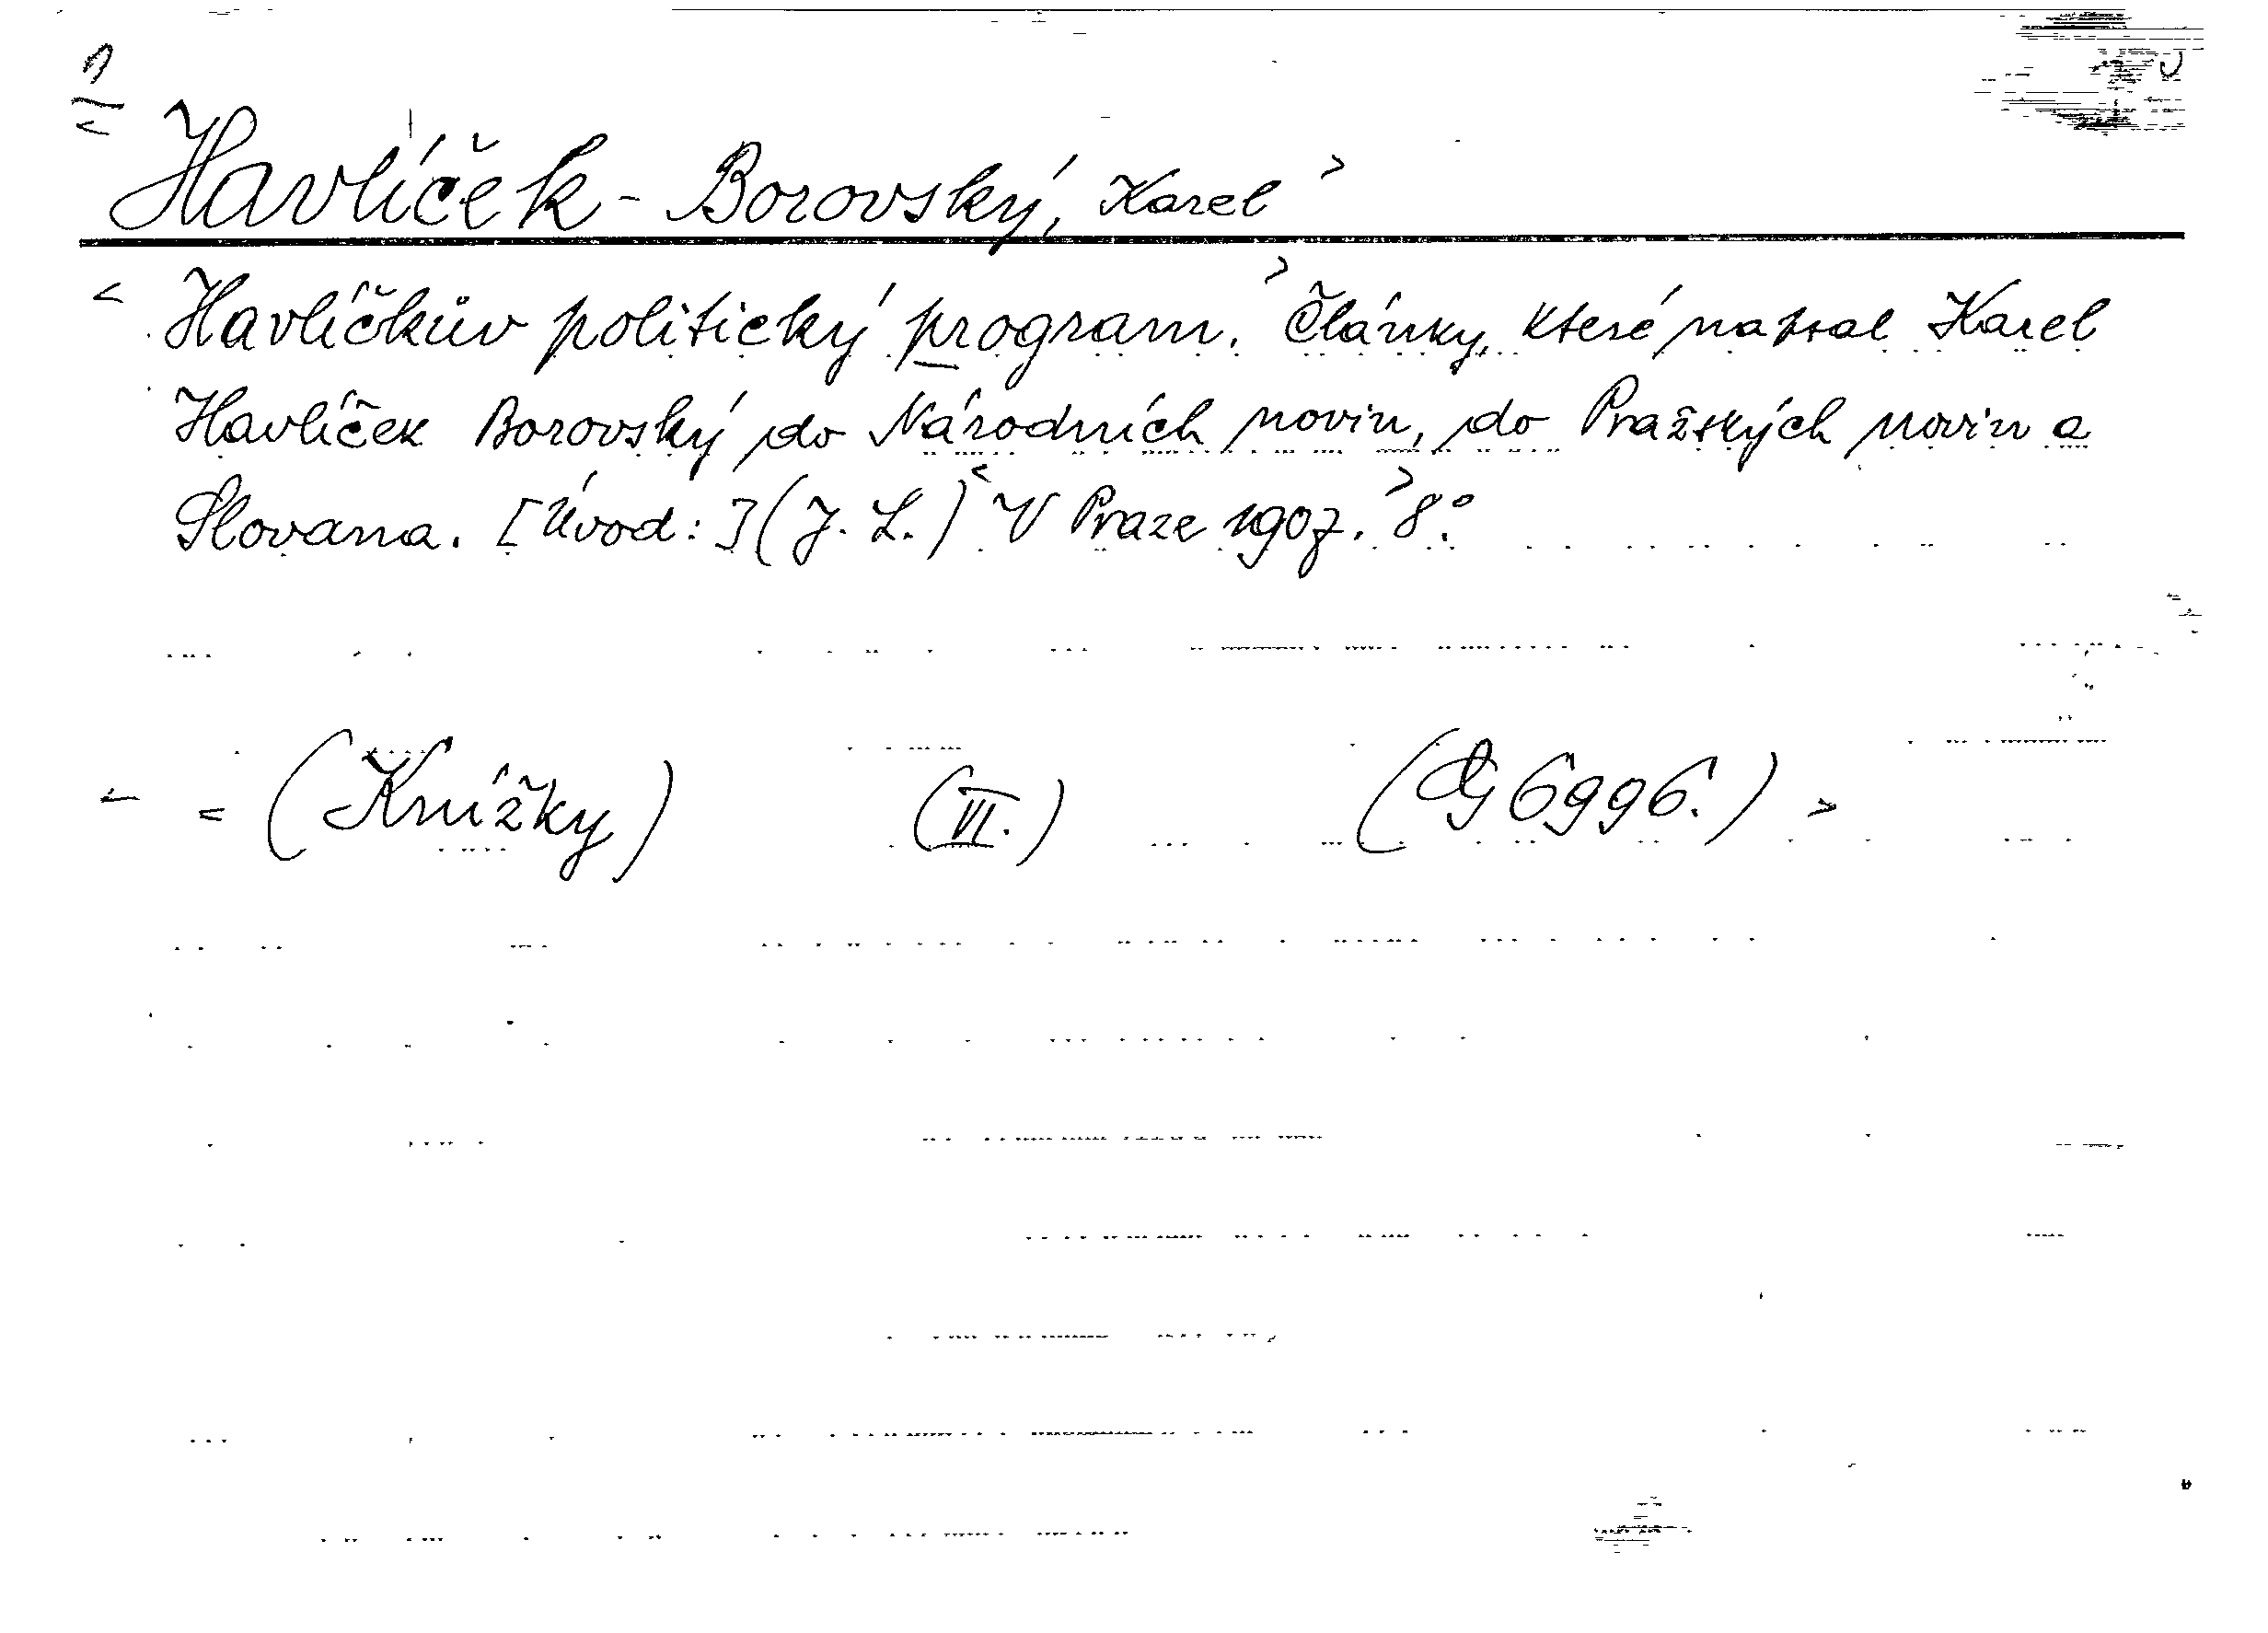 1
< Havlíček - Borovský, Karel >
< Havlíčkův politický program. > Články, které napsal Karel
Havlíček Borovský do Národních novin, do Pražských novin a
Slovana. [Úvod:] (J. L.) < V Praze 1907. > 8°.
< = (Knížky) (VI.) ( 6996.) >